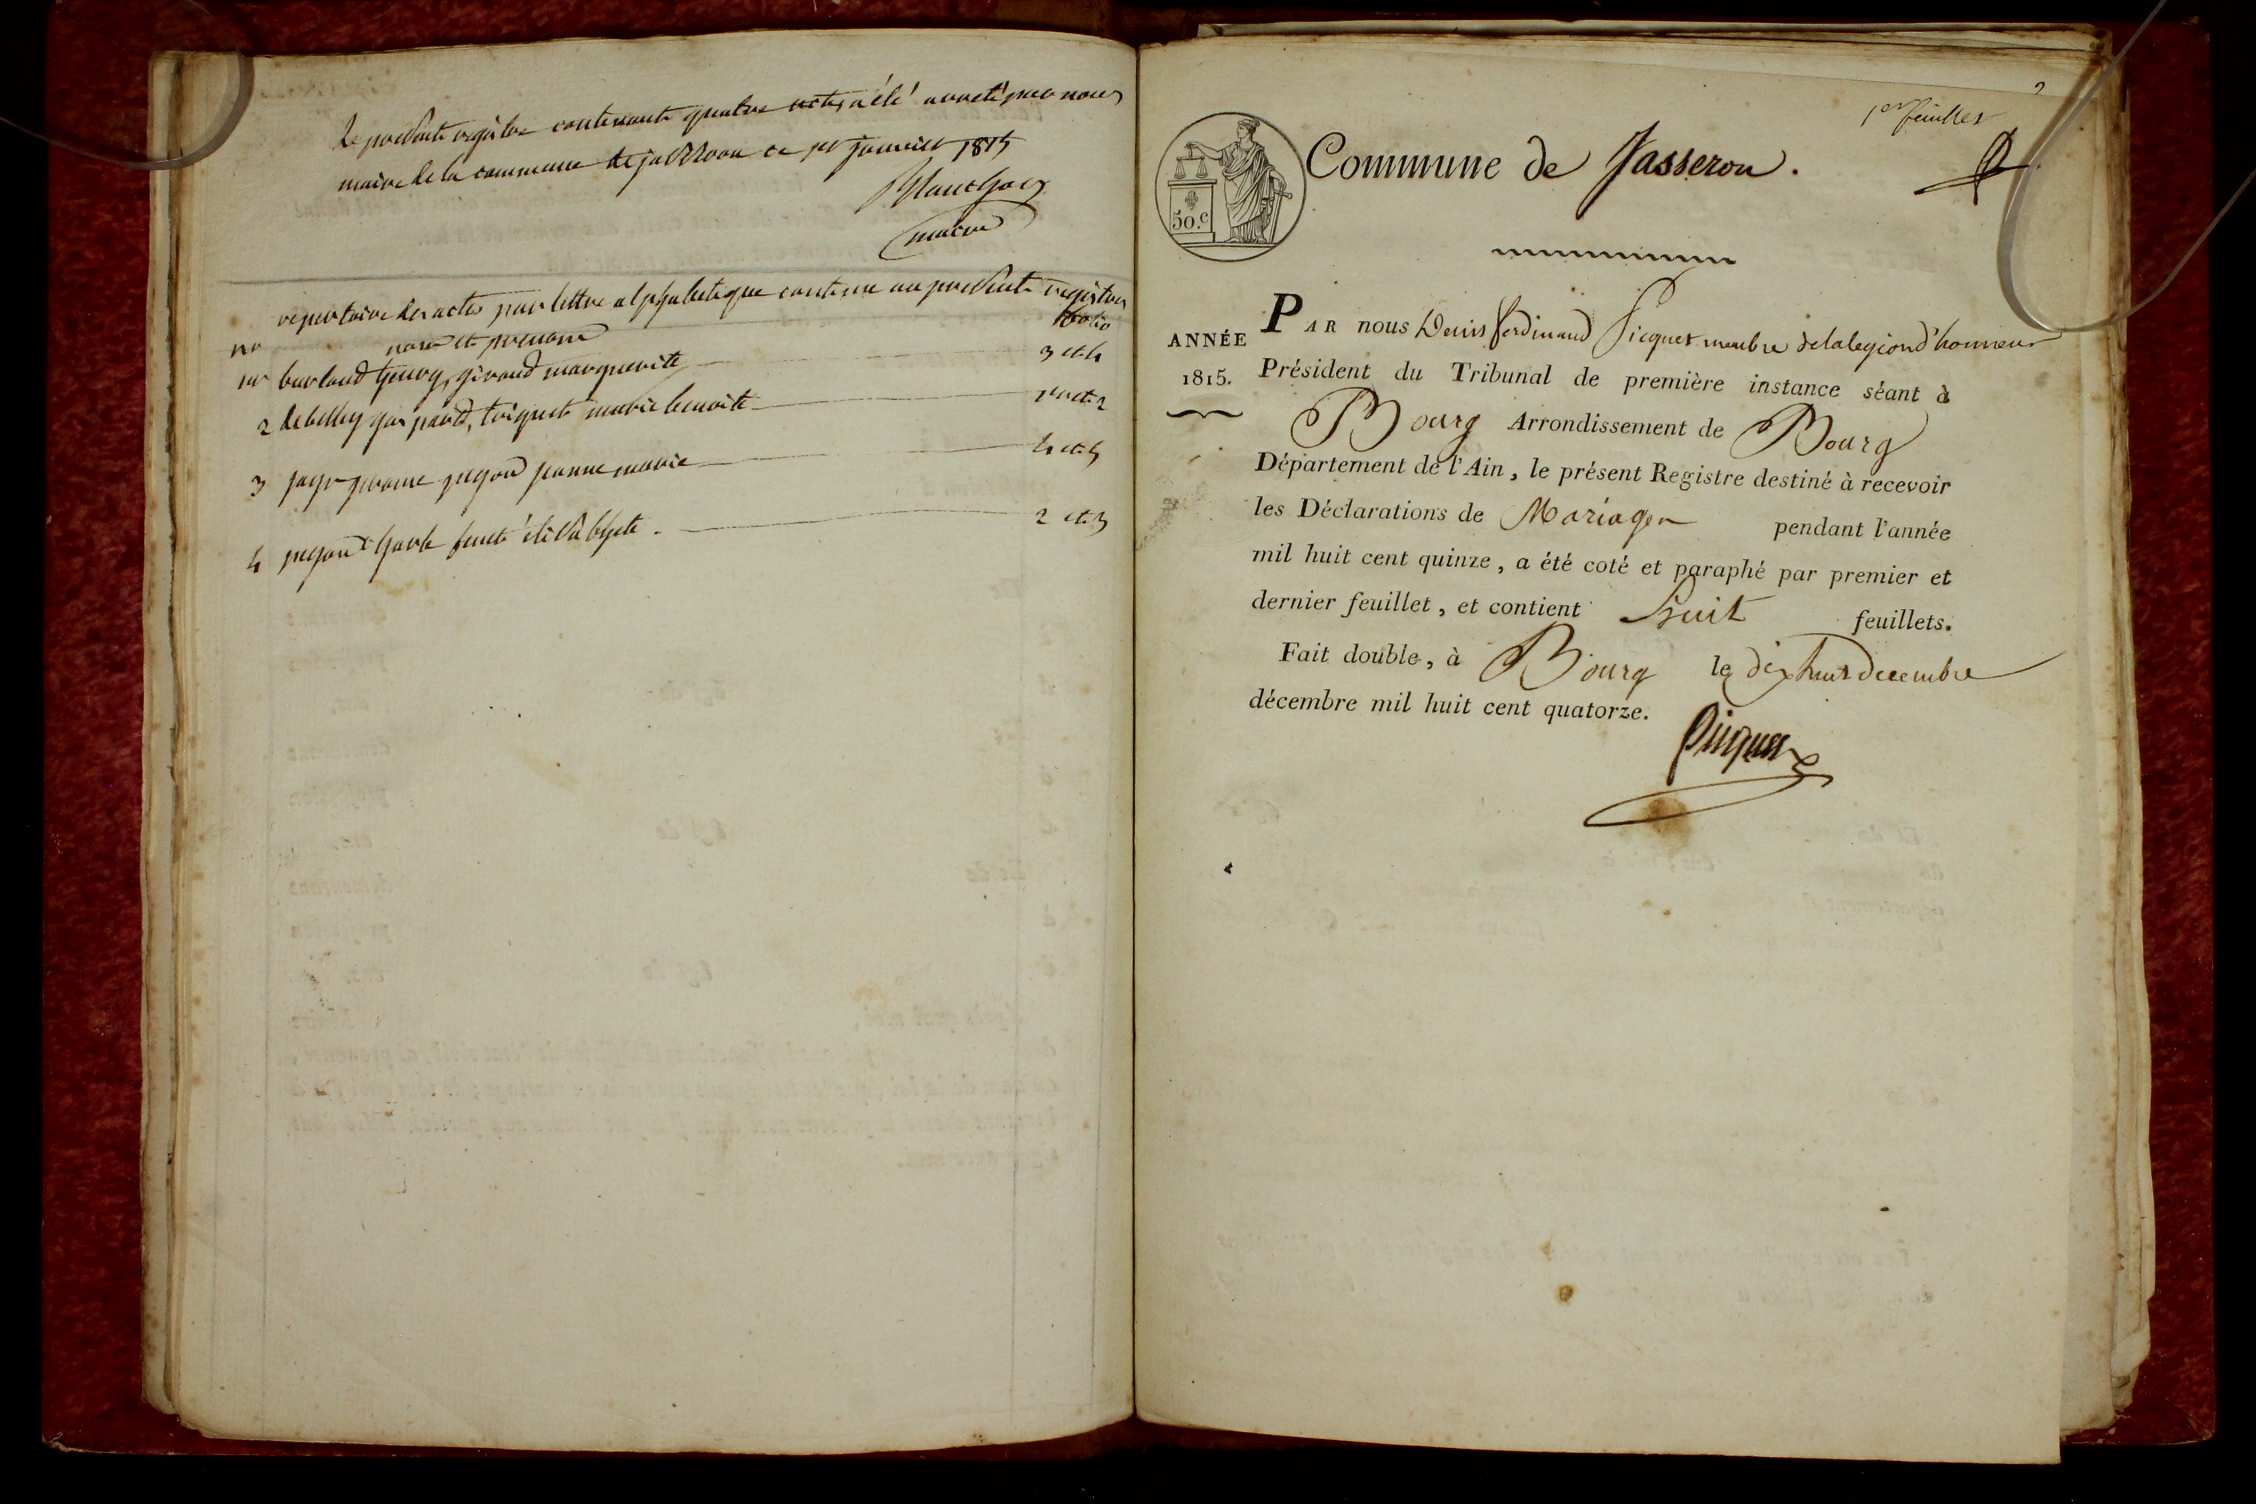 le present registre contenant quatre actes a été arreté par nous
maire de la commune de jasseron ce 1er janvier 1815
maire
repertoire des actes par lettre alphabetique contenu au present registre
no nom et prenom folio
1er burtaud geury, giraud marguerite 3 et 4
2 debelley gaspard, marie benoite 1er et 2
3 jayr pegon jeanne marie 4 et 5
4 pegon 2 et 3
1er feuillet
Commune de Jasseron.
50.c
ANNÉE
1815.
PAR nous Denis ferdinand Picquet membre de la legion d'honneur
Président du Tribunal de première instance séant à
Bourg Arrondissement de Bourg
Département de l'Ain, le présent Registre destiné à recevoir
les Déclarations de Mariages pendant l'année
mil huit cent quinze, a été coté et paraphé par premier et
dernier feuillet, et contient huit feuillets.
Fait double, à Bourg le dix huit decembre
décembre mil huit cent quatorze.
Picquet